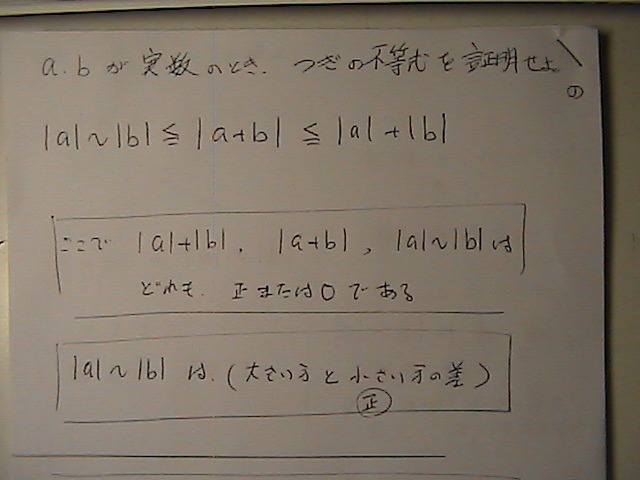 a.bが実数のとき.つぎの不等式を証明せよ
の
|a|~|b|≦|a+b|≦|a|+|b|
ここで |a|+|b|, |a+b|, |a|~|b|は
どれも.正または0である
|a|~|b| は.(大きい方と小さい方の差)
正